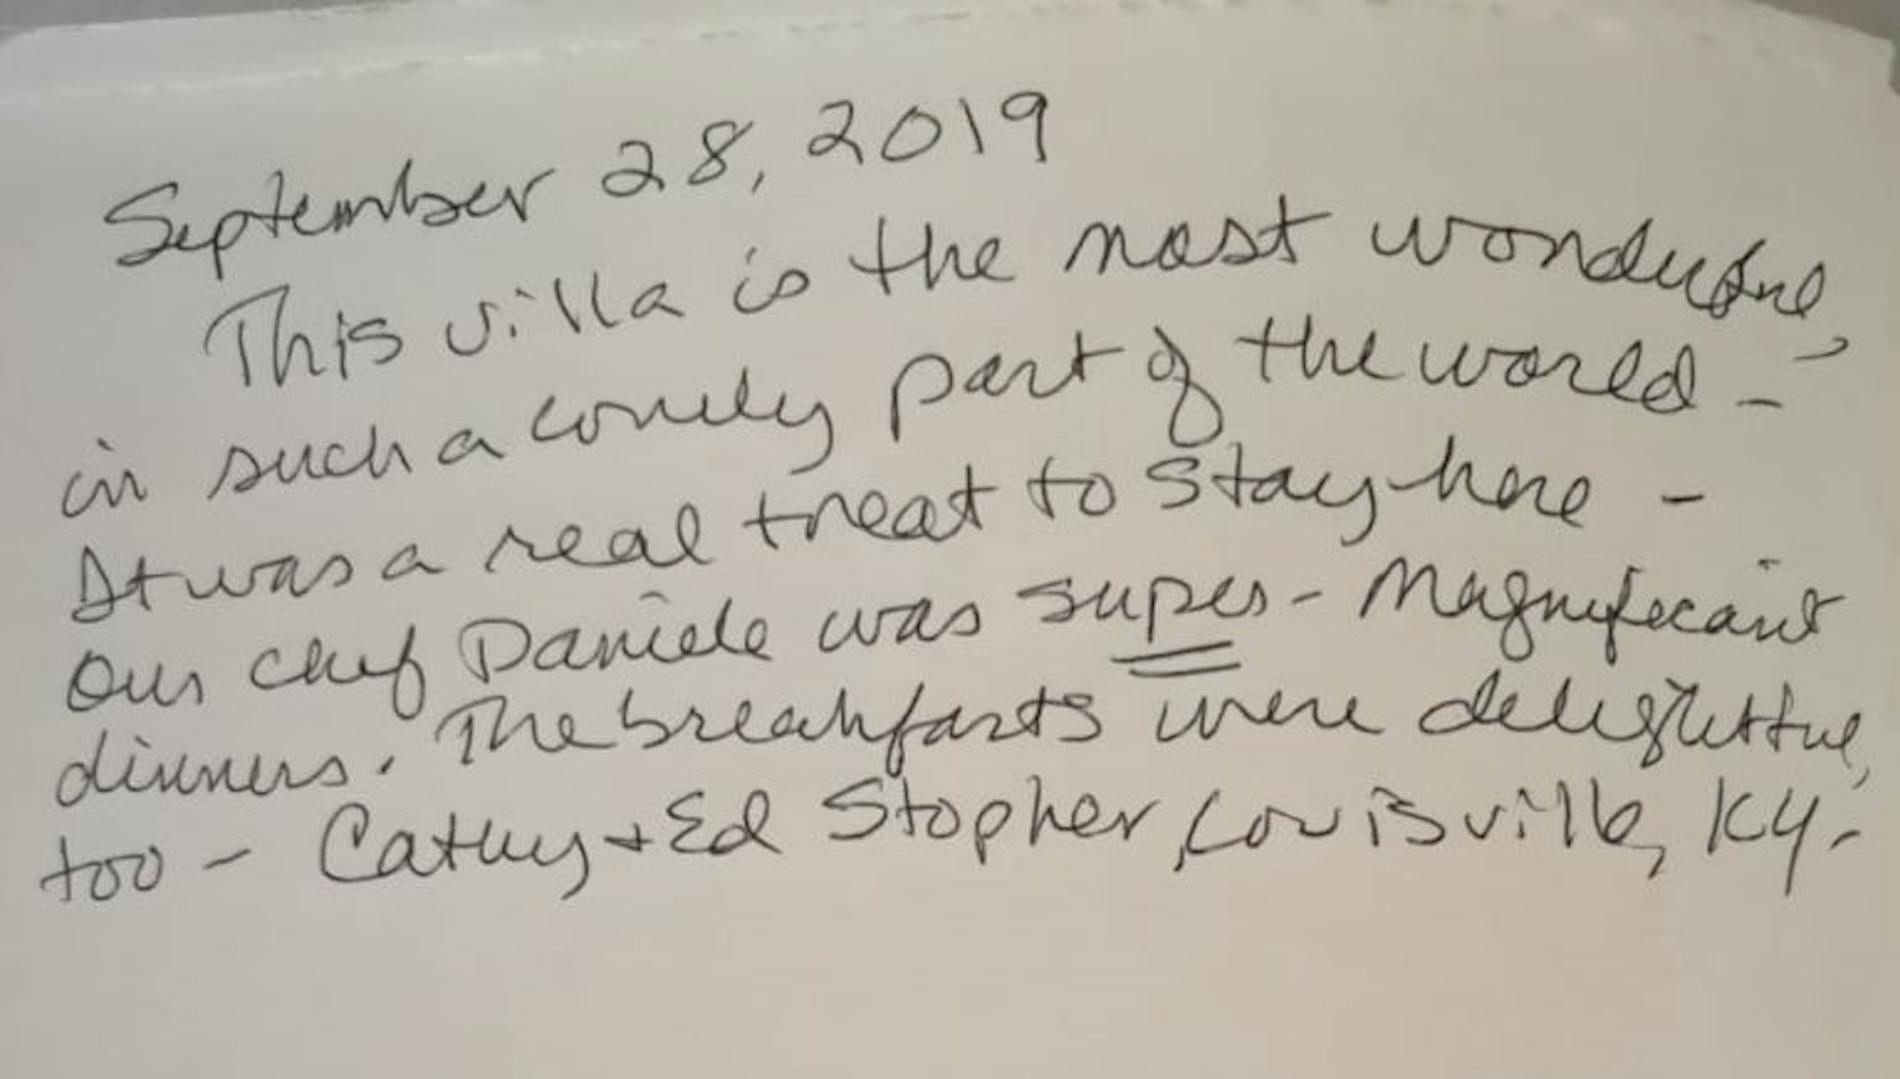 September 28, 2019
This villa is the most wonderful,
in such a comely part of the world -
It was a real treat to stay here -
Our chef Daniele was super - Magnificant
dinners. The breakfasts were delightful,
too - Cathy + Ed Stopher, Louisville, KY.